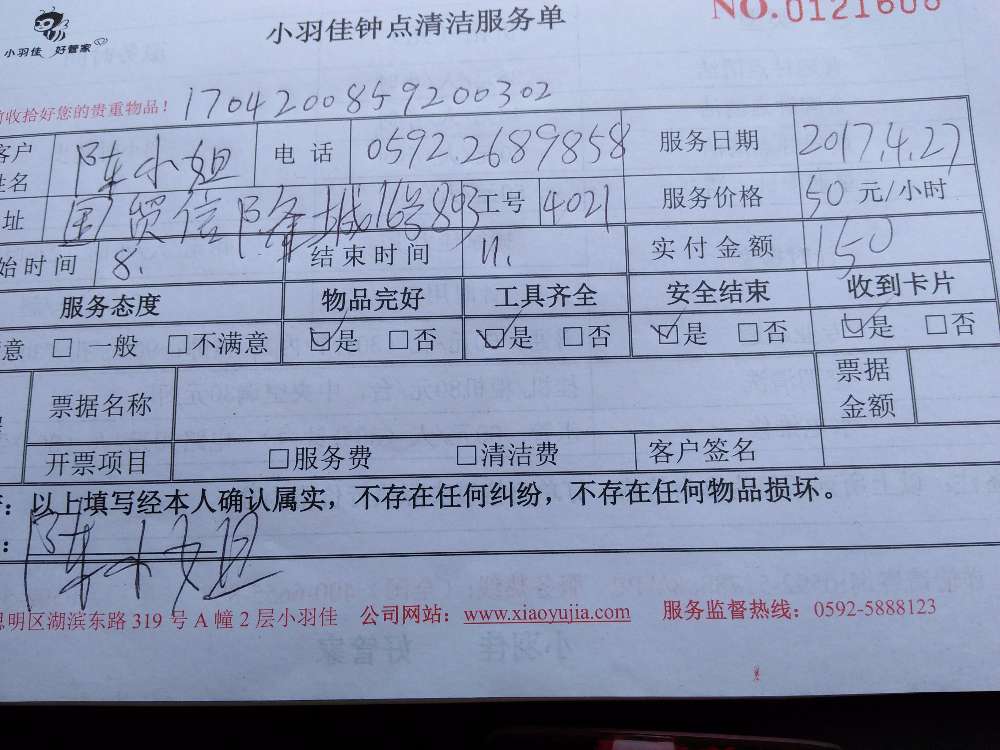 小羽佳 好管家
小羽佳钟点清洁服务单
NO.0121608
收拾好您的贵重物品！
1704200859200302
客户姓名 陈小姐 电话 0592.2689858 服务日期 2017.4.27
址 国贸信隆城16号893 工号 4021 服务价格 50 元/小时
始时间 8. 结束时间 11. 实付金额 150
服务态度 物品完好 工具齐全 安全结束 收到卡片
意 □ 一般 □不满意 ☑是 □否 ☑是 □否 ☑是 □否 ☑是 □否
票据名称 票据金额
开票项目 □服务费 □清洁费 客户签名
：以上填写经本人确认属实，不存在任何纠纷，不存在任何物品损坏。
：陈小姐
思明区湖滨东路 319 号 A 幢 2 层小羽佳 公司网站：www.xiaoyujia.com 服务监督热线：0592-5888123